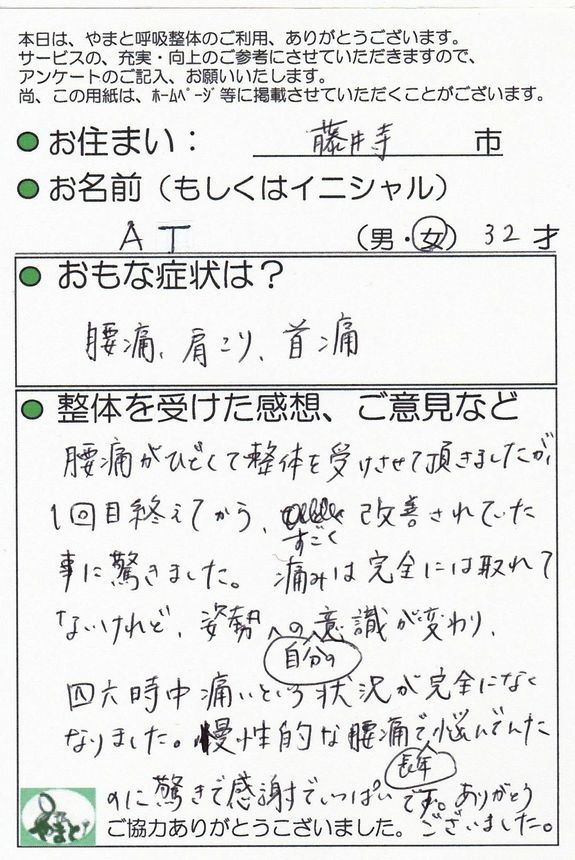 本日は、やまと呼吸整体のご利用、ありがとうございます。
サービスの、充実・向上のご参考にさせていただきますので、
アンケートのご記入、お願いいたします。
尚、この用紙は、ﾎｰﾑﾍﾟｰｼﾞ等に掲載させていただくことがございます。
●お住まい： 藤井寺 市
●お名前（もしくはイニシャル）
A T （男・女） 32 才
●おもな症状は？
腰痛、肩こり、首痛
●整体を受けた感想、ご意見など
腰痛がひどくて整体を受けさせて頂きましたが、
1回目終えてから、すごく改善されていた
事に驚きました。痛みは完全には取れて
ないけれど、姿勢への自分の意識が変わり、
四六時中痛いという状況が完全になく
なりました。慢性的な腰痛で長年悩んでいた
のに驚きで感謝でいっぱいです。ありがとう
ございました。
やまと
ご協力ありがとうこざいました。